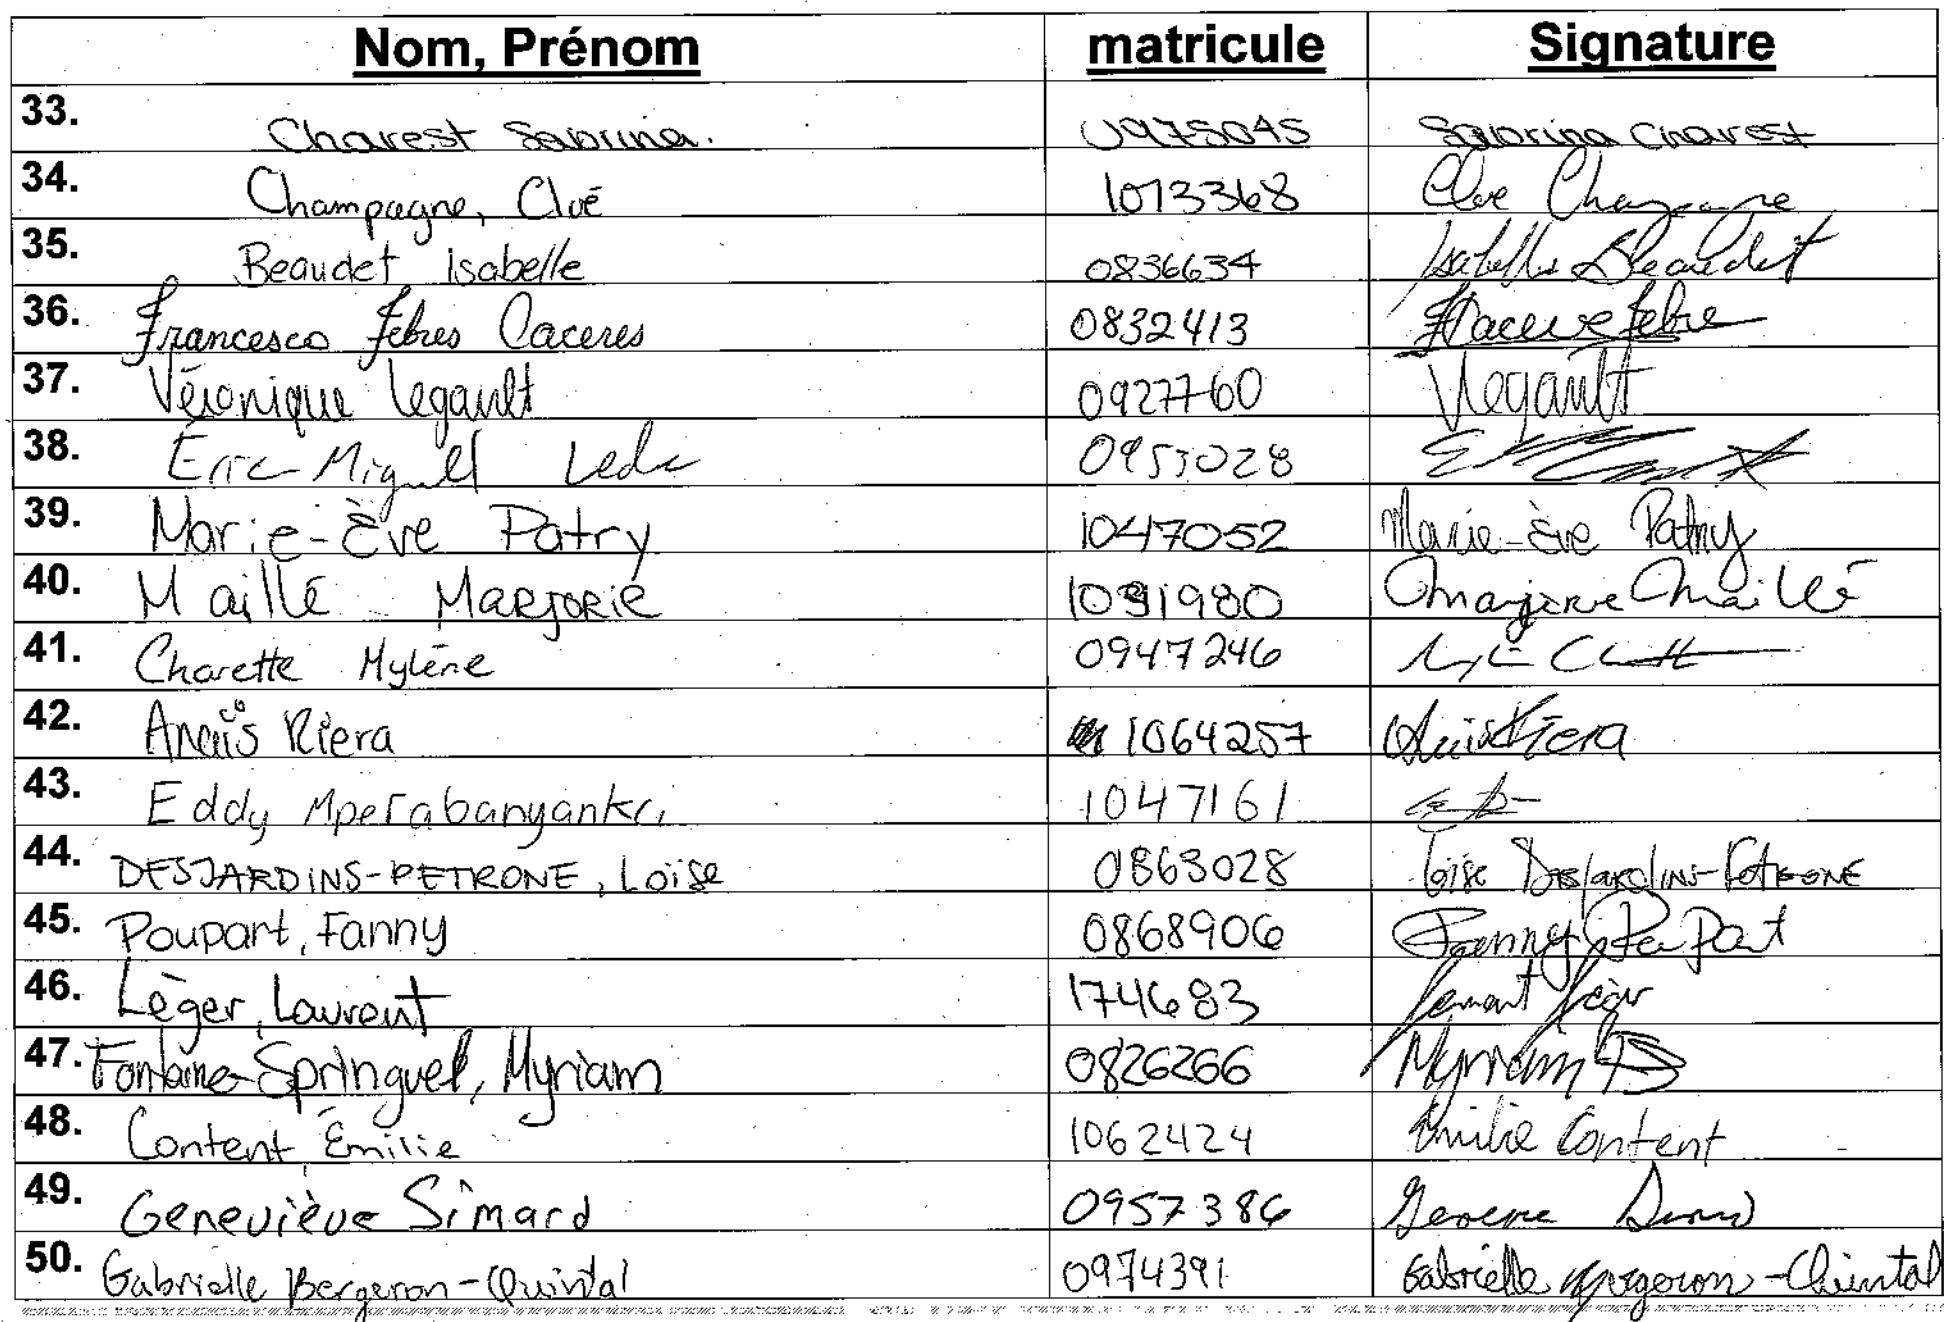 Nom, Prénom matricule Signature
33. Charest Sabrina. 0975045 Sabrina Charest
34. Champagne, Cloé 1073368 Cloe Champagne
35. Beaudet Isabelle 0836634 Isabelle Beaudet
36. Francesco Febres Caceres 0832413
37. Véronique Legault 0927760 VLegault
38. Éric-Miguel 0953028
39. Marie-Ève Patry 1047052 Marie-Ève Patry
40. Maillé Marjorie 1091980 Marjorie Maillé
41. Charette Mylène 0947246
42. Anaïs Riera 1064257 Anaïs Riera
43. Eddy 1047161
44. DESJARDINS-PETRONE, Loïse 0863028 Loïse Desjardins-Petrone
45. Poupart, Fanny 0868906 Fanny Poupart
46. Léger, Laurent 174683 Laurent Léger
47. Fontaine-Springuel, Myriam 0826266 Myriam
48. Content, Émilie 1062424 Émilie Content
49. Geneviève Simard 0957386
50. Gabrielle Bergeron-Quintal 0974391 Gabrielle Bergeron-Quintal